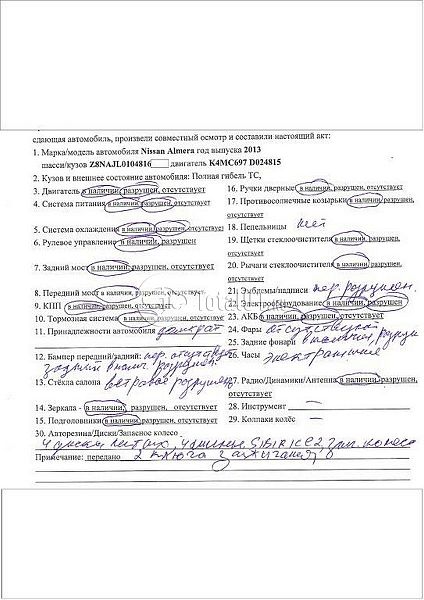 сдающая автомобиль, произвели совместный осмотр и составили настоящий акт:
1. Марка/модель автомобиля Nissan Almera год выпуска 2013
шасси/кузов Z8NAJL0104816 двигатель K4MC697 D024815
2. Кузов и внешнее состояние автомобиля: Полная гибель ТС,
3. Двигатель в наличии, разрушен, отсутствует
4. Система питания в наличии, разрушен, отсутствует
5. Система охлаждения в наличии, разрушен, отсутствует
6. Рулевое управление в наличии, разрушен, отсутствует
7. Задний мост в наличии, разрушен, отсутствует
8. Передний мост в наличии, разрушен, отсутствует
9. КПП в наличии, разрушен, отсутствует
10. Тормозная система в наличии, разрушен, отсутствует
11. Принадлежности автомобиля домкрат
12. Бампер передний/задний: пер. отсутствует
задний в налич. разрушен.
13. Стёкла салона ветровое разрушено
14. Зеркала - в наличии, разрушен, отсутствует
15. Подголовники в наличии, разрушен, отсутствует
16. Ручки дверные в наличии, разрушен, отсутствует
17. Противосолнечные козырьки в наличии, разрушен,
отсутствует
18. Пепельницы нет
19. Щетки стеклоочистителя в наличии, разрушен,
отсутствует
20. Рычаги стеклоочистителя в наличии, разрушен,
отсутствует
21. Эмблемы/надписи пер. разрушен.
22. Электрооборудование в наличии, разрушен
отсутствует
23. АКБ в наличии, разрушен, отсутствует
24. Фары отсутствуют
25. Задние фонари в наличии,
26. Часы электронные
27. Радио/Динамики/Антенна в наличии, разрушен,
отсутствует
28. Инструмент —
29. Колпаки колёс —
30. Авторезина/Диски/Запасное колесо
4 диски литых, 4 шины зап колесо
Примечание: передано 2 ключа зажигания